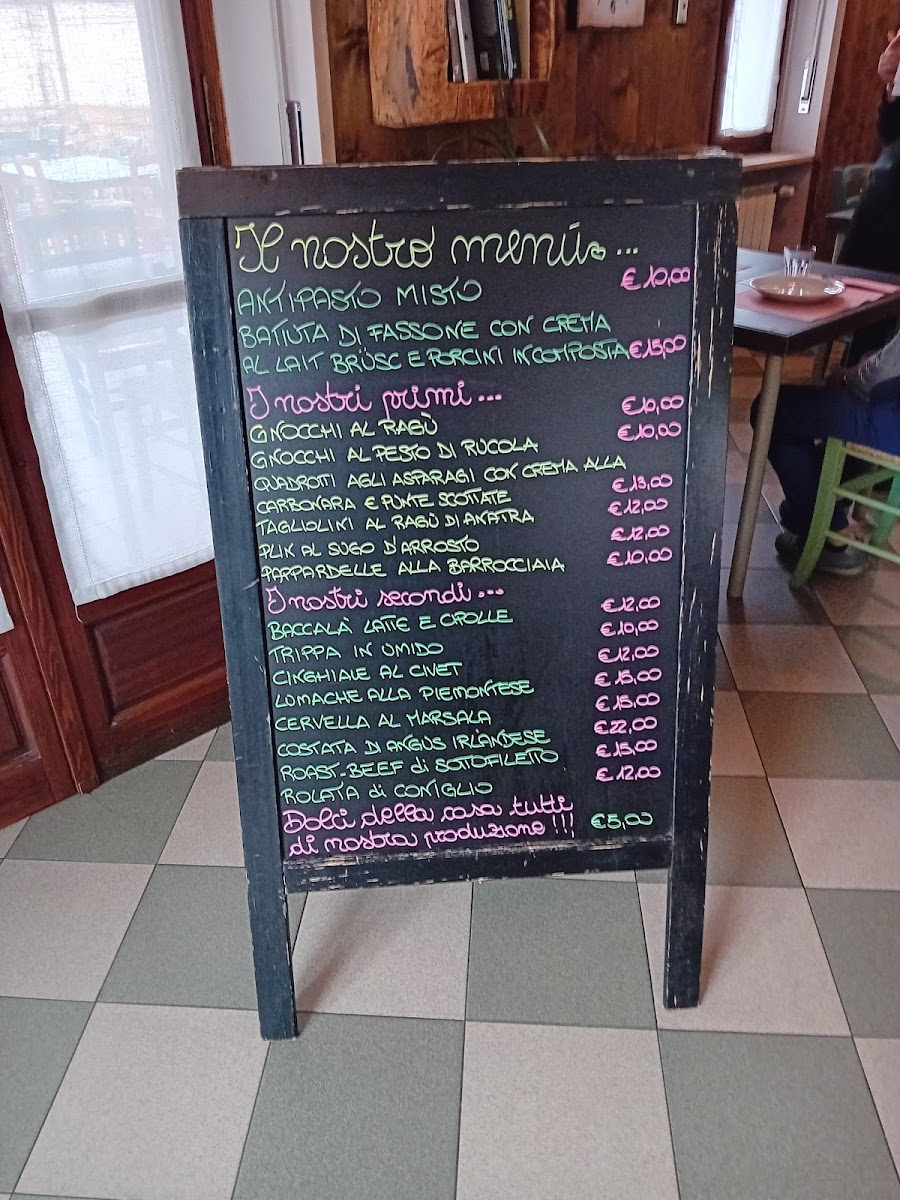 Il nostro menù...
ANTIPASTO MISTO €10,00
BATTUTA DI FASSONE CON CREMA
AL LAIT BRÜSC E PORCINI IN COMPOSTA €15,00
I nostri primi...
GNOCCHI AL RAGÙ €10,00
GNOCCHI AL PESTO DI RUCOLA €10,00
QUADROTTI AGLI ASPARAGI CON CREMA ALLA
CARBONARA E PUNTE SCOTTATE €13,00
TAGLIOLINI AL RAGÙ DI ANATRA €12,00
PLIN AL SUGO D'ARROSTO €12,00
PAPPARDELLE ALLA BARROCCIAIA €10,00
I nostri secondi...
BACCALÀ LATTE E CIPOLLE €12,00
TRIPPA IN UMIDO €10,00
CINGHIALE AL CIVET €12,00
LUMACHE ALLA PIEMONTESE €15,00
CERVELLA AL MARSALA €15,00
COSTATA DI ANGUS IRLANDESE €22,00
ROAST-BEEF di SOTTOFILETTO €15,00
ROLATA di CONIGLIO €12,00
Dolci della casa tutti
di nostra produzione!!! €5,00